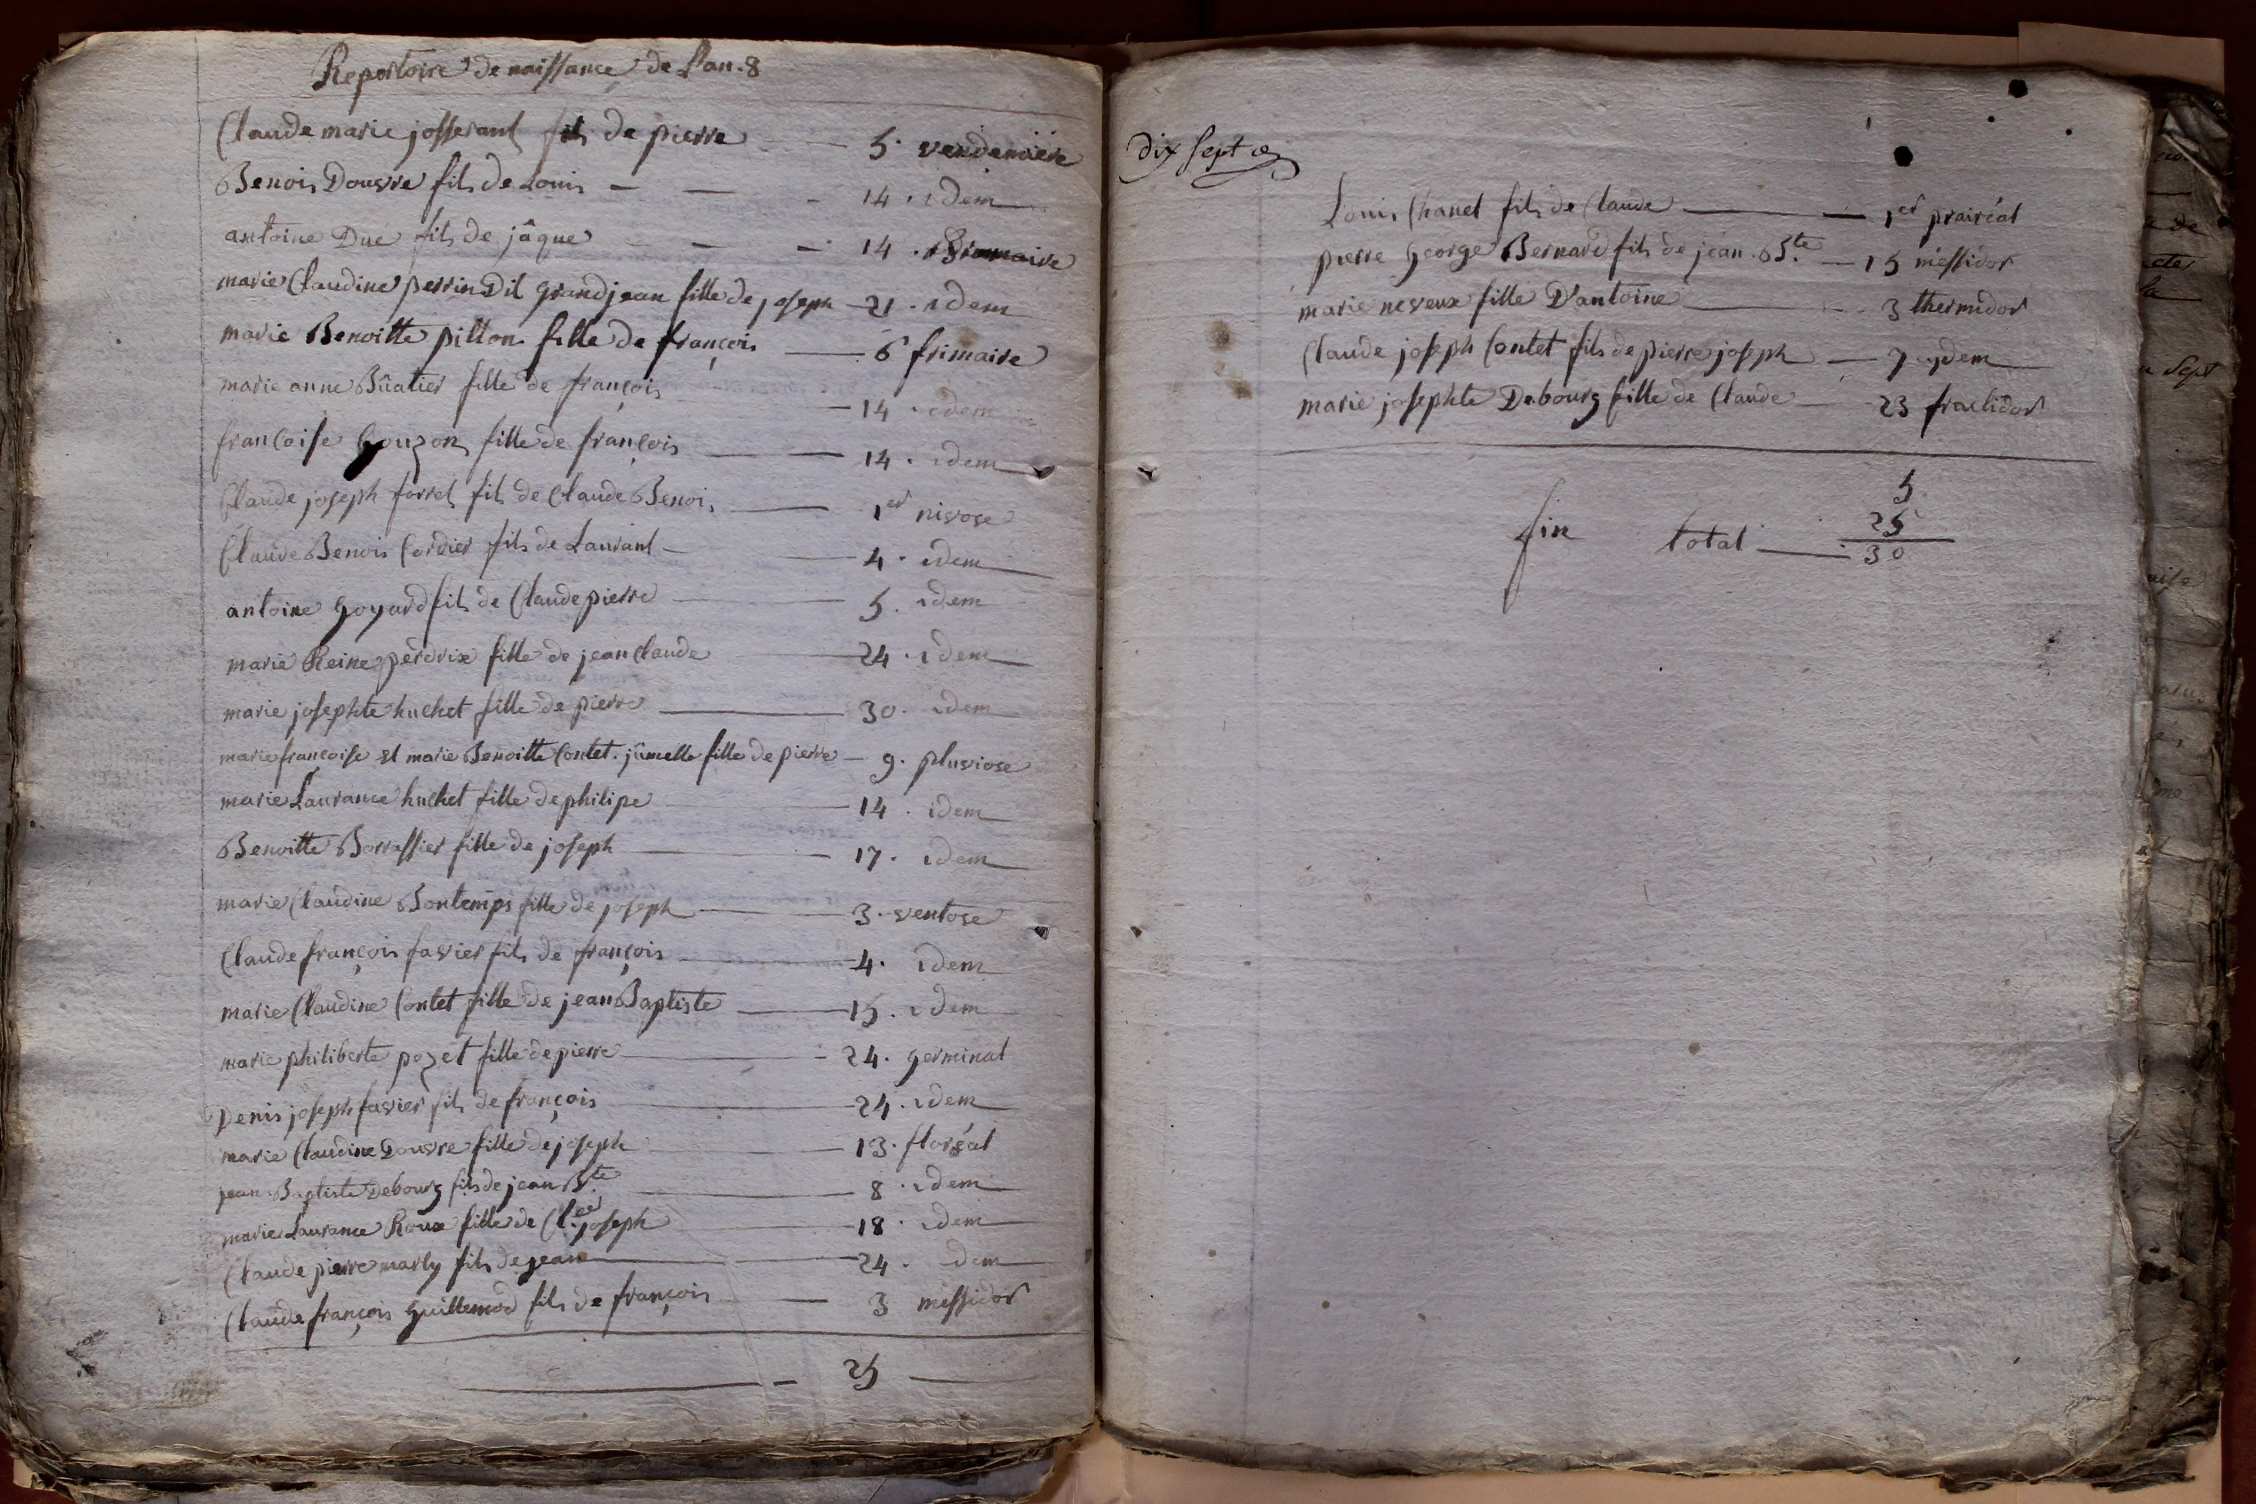 Repertoire de naissance de L'an .8
Claude marie josserant fils de pierre — 5. vendemiere
Benois Douvre fils de Louis — — 14. idem
antoine Duc fils de jâque — — 14. Bromaire
marie Claudine perrin Dit grandjean fille de joseph — 21. idem
marie Benoitte pillon fille de françois — 6 frimaire
marie anne Bûatier fille de françois — 14. idem
francoise gouzon fille de françois — 14. idem
Claude joseph forret fils de Claude Benois — 1er nivose
Claude Benois Cordier fils de Laurant — 4. idem
antoine goyard fils de Claude pierre — 5. idem
marie Reine perdrix fille de jean Claude — 24. idem
marie josephte huchet fille de pierre — 30. idem
marie francoise et marie Benoitte Contet. jûmelle fille de pierre — 9. pluviose
marie Laurance huchet fille de philipe — 14. idem
Benoitte Borrassier fille de joseph — 17. idem
marie Claudine Bontemps fille de joseph — 3. ventose
Claude françois favier fils de françois — 4. idem
marie Claudine Contet fille de jean Baptiste — 15. idem
marie philiberte pozet fille de pierre — 24. germinal
Denis joseph favier fils de françois — 24. idem
marie Claudine Douvre fille de joseph — 13. floréal
jean Baptiste Debourg fils de jean Bte — 8. idem
marie Laurance Roux fille de Cl. joseph — 18. idem
Claude pierre marly fils de jean — 24. idem
Claude françois guillemod fils de françois — 3 messidor
— 25 —
Dix sept
Louis Chanel fils de Claude — 1er prairéal
pierre george Bernard fils de jean . Bte — 15 messidor
marie neveux fille D'antoine — 3 thermidor
Claude joseph Contet fils de pierre joseph — 7. ydem
marie josephte Debourg fille de Claude — 23 fructidor
5
25
fin total — 30